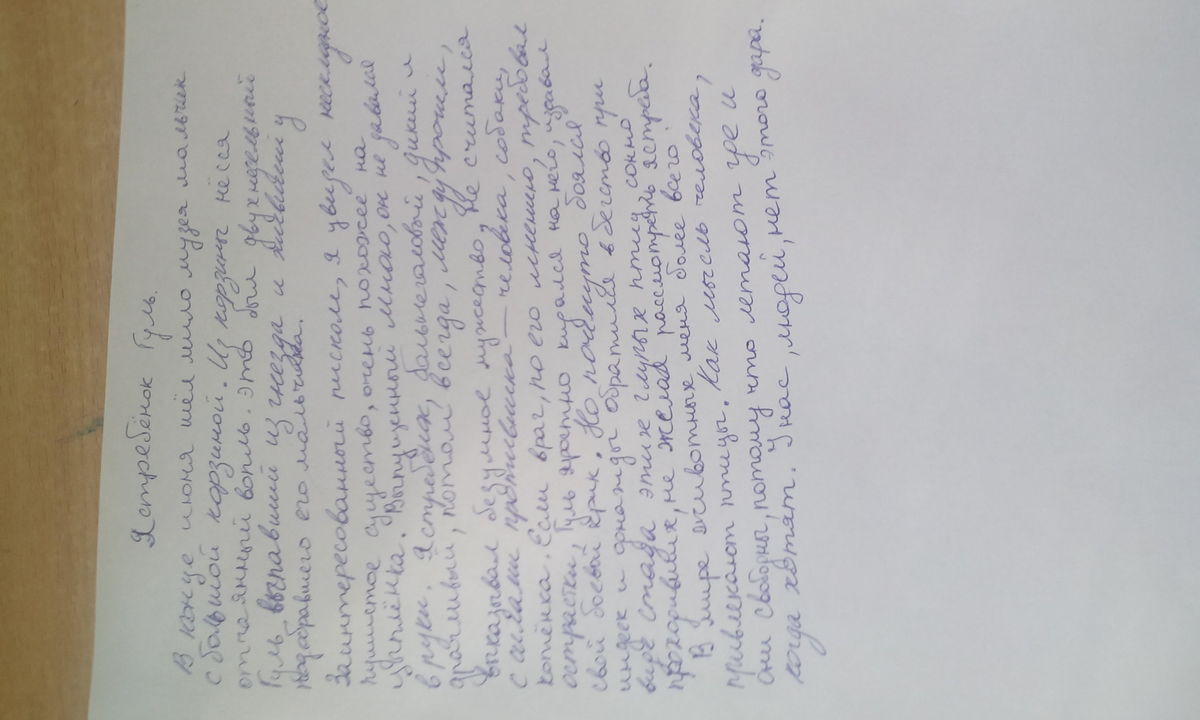 Ястребёнок Гуль.
В конце июня шёл мимо музея мальчик
с большой корзиной. Из корзины нёсся
отчаянный вопль. Это был двухнедельный
Гуль выпавший из гнезда и живший у
подобравшего его мальчика.
Заинтересованный писком, я увидел
пушистое существо, очень похожее на
цыплёнка. Выпущенный мною, он не давался
в руки. Ястребёнок, большеголовый, дикий и
драчливый, потом всегда, между прочим,
выказывал безумное мужество, Не считался
с силами противника — человека, собаки,
котёнка. Если враг, по его мнению, требовал
острастки, Гуль яростно кидался на него, издавал
свой боевой крик. Но почему-то боялся
индеек и однажды обратился в бегство при
виде стада этих глупых птиц сонно
проходивших, не желая рассмотреть ястреба.
В мире животных меня более всего
привлекают птицы. Как мысль человека,
они свободны, потому что летают где и
когда хотят. У нас, людей, нет этого дара.